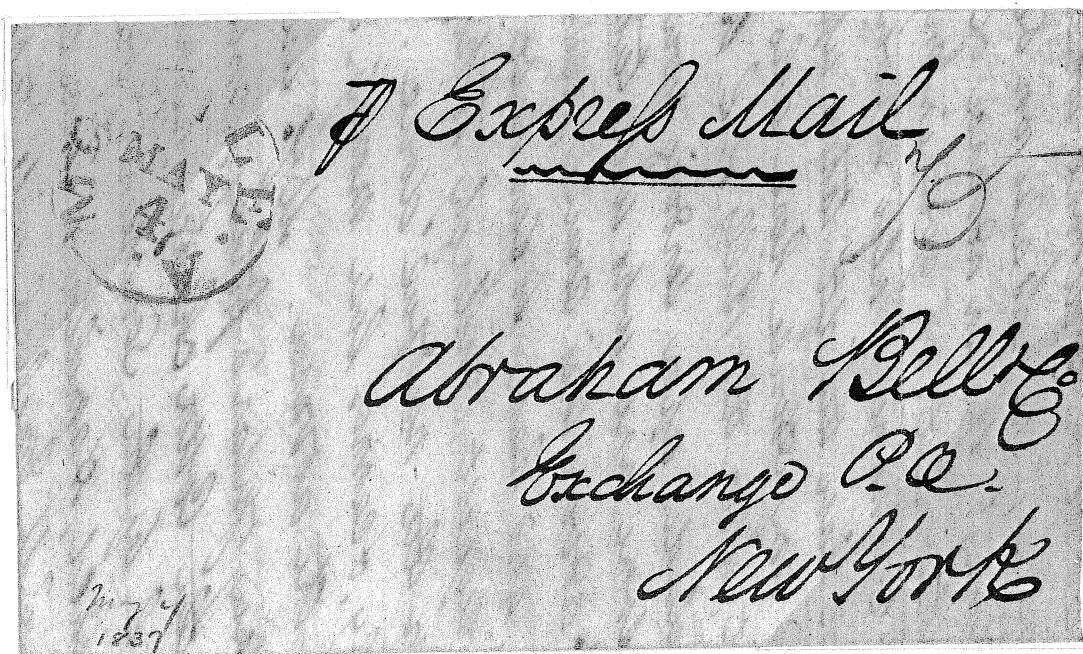 ⅌ Express Mail
MAY
4
Abraham Bell & Co
Exchange P.O.
New York
May 4
1837